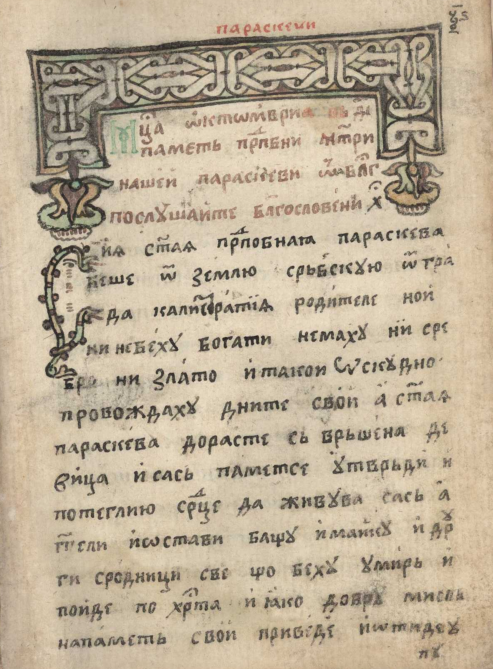 параскеви
мⷭ҇ца ѡктѡмврїа въ д҃і
паметь прпⷣбни мт҃ри
нашеи параскеви ѿч҃е бл҃гⷭ
послушаите благословени х҃
Сиꙗ ст҃аꙗ прпⷣобнаꙗ параскева
беше ѿ землю срьбскую ѿ гра
да каликратїꙗ родителе ной
ни небеху богати немаху ни сре
бро ни злато и такои ѡскудно
провождаху дните свои а ст҃аꙗ
параскева дорасте съ врьшена де
вица и сась паметсе утврьди и
потеглию срⷣце да живува сась а
гг҃ели иѡстави бащу имаику и дрꙋ
ги сродници све що беху умирь и
поиде по хрⷭта и ꙗко добру мисьль
напаметь свои приведе иѡтидеу
пу